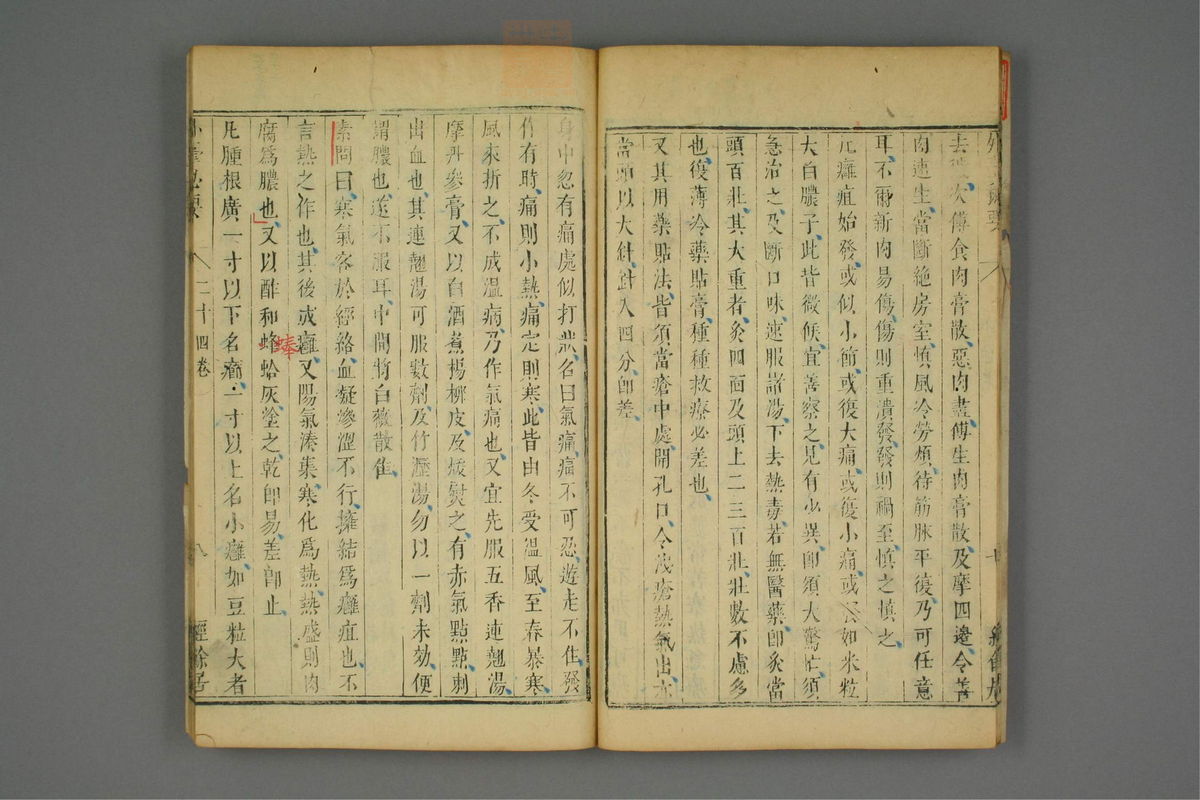 外臺祕要
去惡肉次傅食肉膏散惡肉盡傅生肉膏散及摩四邊令善
肉速生當斷絕房室愼風冷勞煩待筋脉平復乃可任意
耳不爾新肉易傷傷則重潰發發則禍至愼之愼之
凡癰疽始發或似小癤或復大痛或復小痛或發如米粒
大白膿子此皆微候宜善察之見有少異卽須大驚忙須
急治之及斷口味速服諸湯下去熱毒若無醫藥卽灸當
頭百壯其大重者灸四面及頭上二三百壯壯數不慮多
也復薄冷藥貼膏種種救療必差也
又其用藥貼法皆須當瘡中處開孔口令洩瘡熱氣出亦
當頭以大針針入四分卽差
身中忽有痛處似打狀名曰氣痛痛不可忍遊走不住發
作有時痛則小熱痛定則寒此皆由冬受溫風至春暴寒
風來折之不成溫病乃作氣痛也又宜先服五香連翹湯
摩丹參膏又以白酒煮楊柳皮及煖熨之有赤氣點點刺
出血也其連翹湯可服數劑及竹瀝湯勿以一劑未効便
謂膿也遂不服耳中間將白薇散佳
素問曰寒氣客於經絡血凝滲澀不行擁結爲癰疽也不
言熱之作也其後成癰又陽氣湊集寒化爲熱熱盛則肉
腐爲膿也又以酢和蜯蛤灰塗之乾卽易差卽止
蜯
凡腫根廣一寸以下名癤一寸以上名小癰如豆粒大者
外臺祕要
二十四卷
八
經餘居